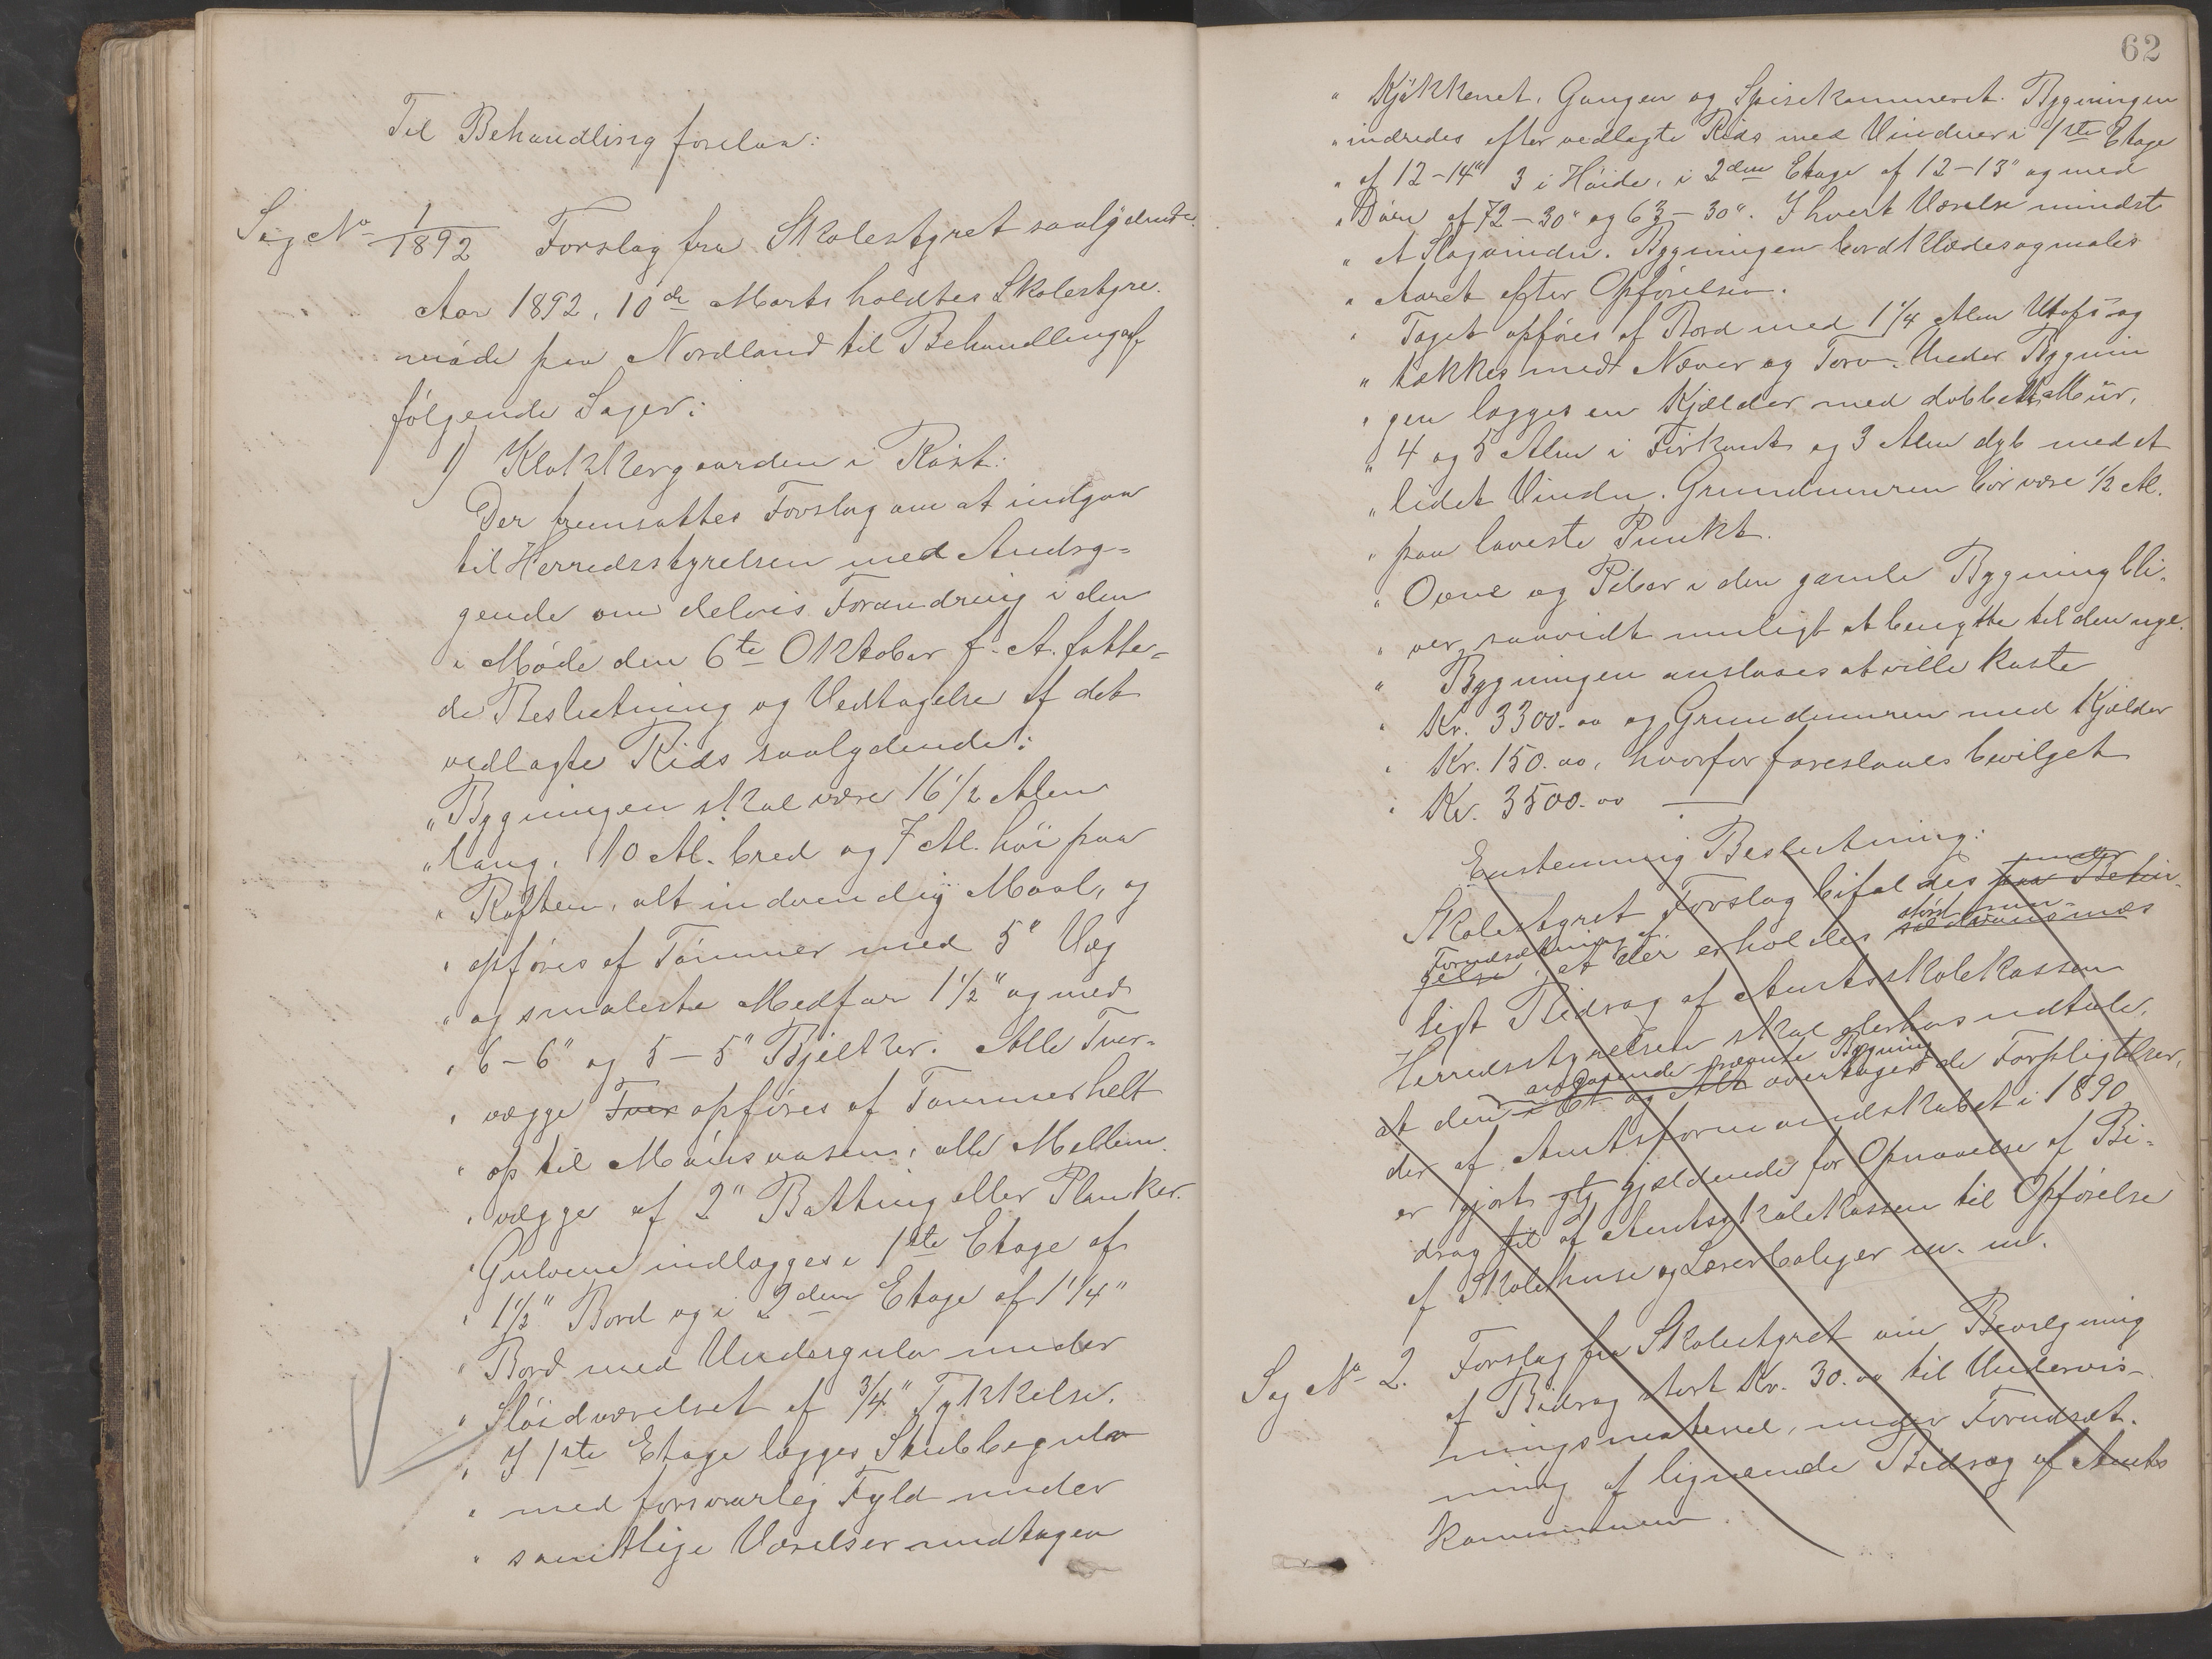 Til Behandling forelaa:
Sag No 1/1892 Forslag fra Skolestyret saalydende:
Aar 1892, 10de Marts holdtes Skolestyre-
møde paa Nordland til Behandling af
følgende Sager:
1) Klokkergaarden i Røst:
Der fremsattes Forslag om at indgaa
til Herredsstyrelsen med Andra-
gende om delvis Forandring i den
i Møde den 6te Oktober f. A. fatte-
de Beslutning og Vedtagelse af det
vedlagte Rids saalydende:
"Bygningen skal være 16 1/2 Alen
"lang, 10 Al. bred og 7 Al. høi paa
" Røsten, alt indvendig Maal, og
" opføres af Tømmer med 5" Væg
" og smaleste Medfar 1 1/2" og med
" 6-6" og 5-5" Bjelker. Alle Tver-
" vægge Tver opføres af Tømmer helt
" op til Mønsaasen, alle Mellem-
" vægge af 2" Batting eller Planker.
" Gulvene indlægges i 1ste Etage af
" 1 1/2" Bord og i 2den Etage af 1 1/4"
" Bord med Undergulv under
" Sløidværelset af 3/4" Tykkelse.
" I 1ste Etage lægges Stubbegulv
" med forsvarlig Fyld under
" samtlige Værelser undtagen
62
" Kjøkkenet, Gangen og Spisekammeret. Bygningen
" indredes efter vedlagte Rids med Vinduer i 1ste Etage
" af 12-14" 3 i Høide, i 2den Etage af 12-13" og med
" Døre af 72-30" og 63-30". I hvert Værelse mindst
" et Slagvindu. Bygningen bordklædes og males
" Aaret efter Opførelsen.
" Taget opføres af Bord med 1 1/4 Alen Utøfs og
" tækkes med Næver og Torv. Under Bygnin
" gen lægges en Kjælder med dobbelt Mur,
" 4 og 5 Alen i Firkant og 3 Alen dyb med et
" lidet Vindu. Grundmuren bør være 1/2 Al.
" paa laveste Punkt.
" Ovne og Piber i den gamle Bygning bli-
" ver saavidt muligt at benytte til den nye.
" Bygningen ansloaes at ville koste
" Kr. 3300.00 og Grundmuren med Kjælder
" Kr. 150.00, hvorfor foreslaaes bevilget
" Kr. 3500.00
Enstemmig Beslutning:
Skolestyret Forslag bifaldes paa under Betin-
gelse Forudsætning af, at der erholdes
ligt Bidrag af Amtsskolekassen
Herredsstyrelsen skal derhos udtale,
at den i Et og Alt angaaende nævnte Bygning overtager de Forpligtelser,
der af Amtsformandskabet i 1890
er gjort gj gjældende for Opnaaelse af Bi-
drag til af Amtsskolekassen til Opførelse
af Skolehuse og Lærerboliger m. m.
Sag No 2. Forslag fra Skolestyret om Bevilgning
af Bidrag stort Kr. 30.00 til Undervis-
ningsmateriel, under Forudsæt-
ning af lignende Bidrag af Amts
kommunen.